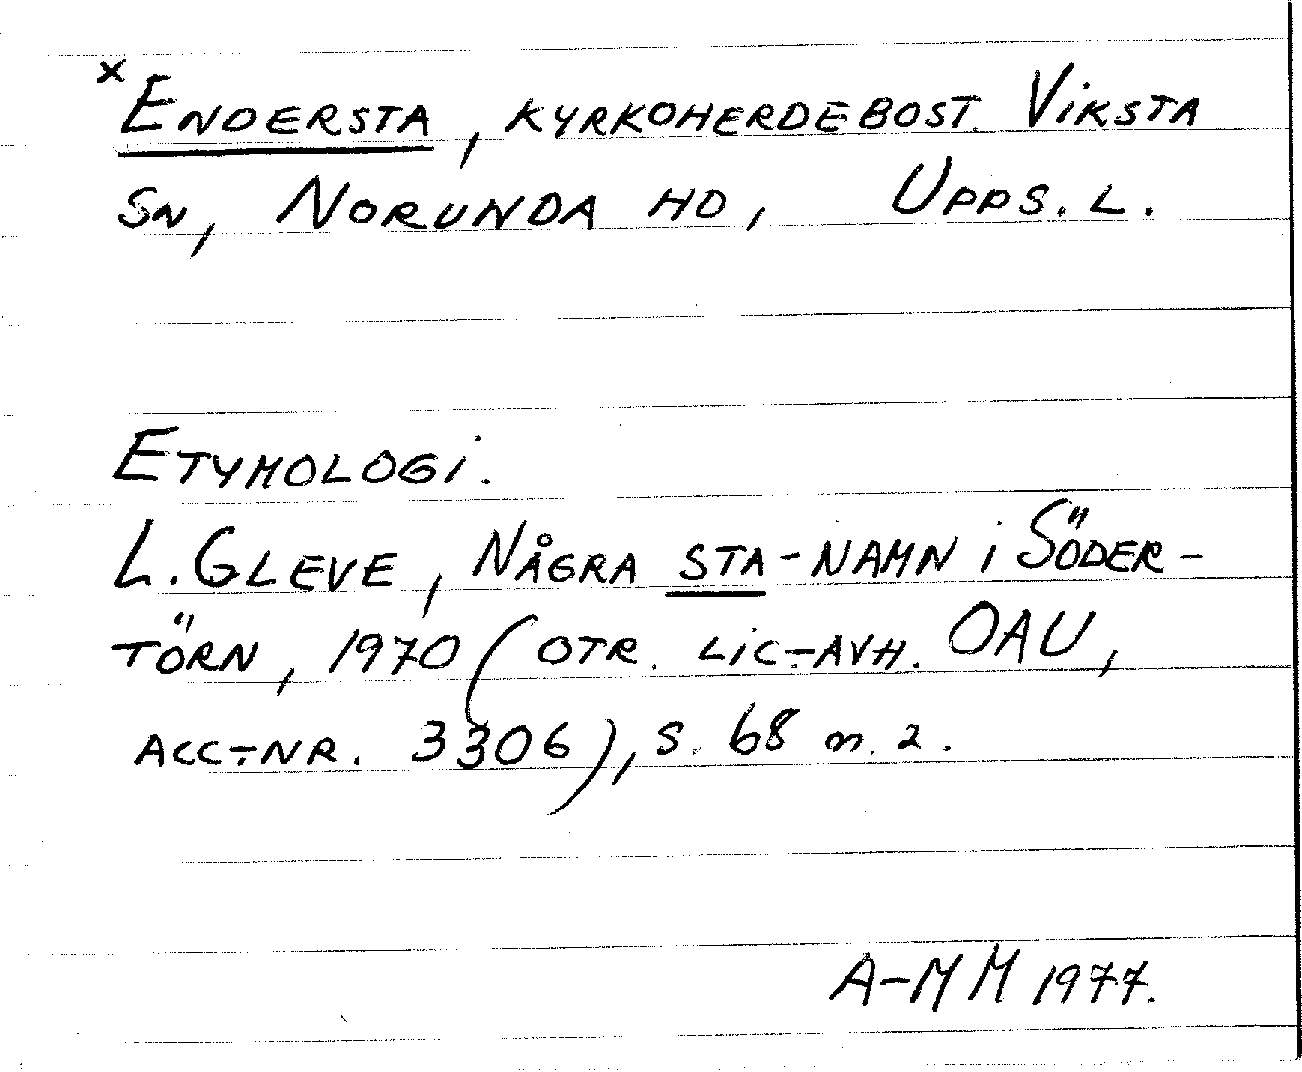 × ENDERSTA, KYRKOHERDEBOST. VIKSTA
SN, NORUNDA HD, UPPS. L.
ETYMOLOGI.
L. GLEVE, NÅGRA STA-NAMN i SÖDER-
TÖRN, 1970 (OTR. LIC.-AVH. OAU,
ACC.-NR. 3306), S. 68 m. 2.
A-M M 1977.